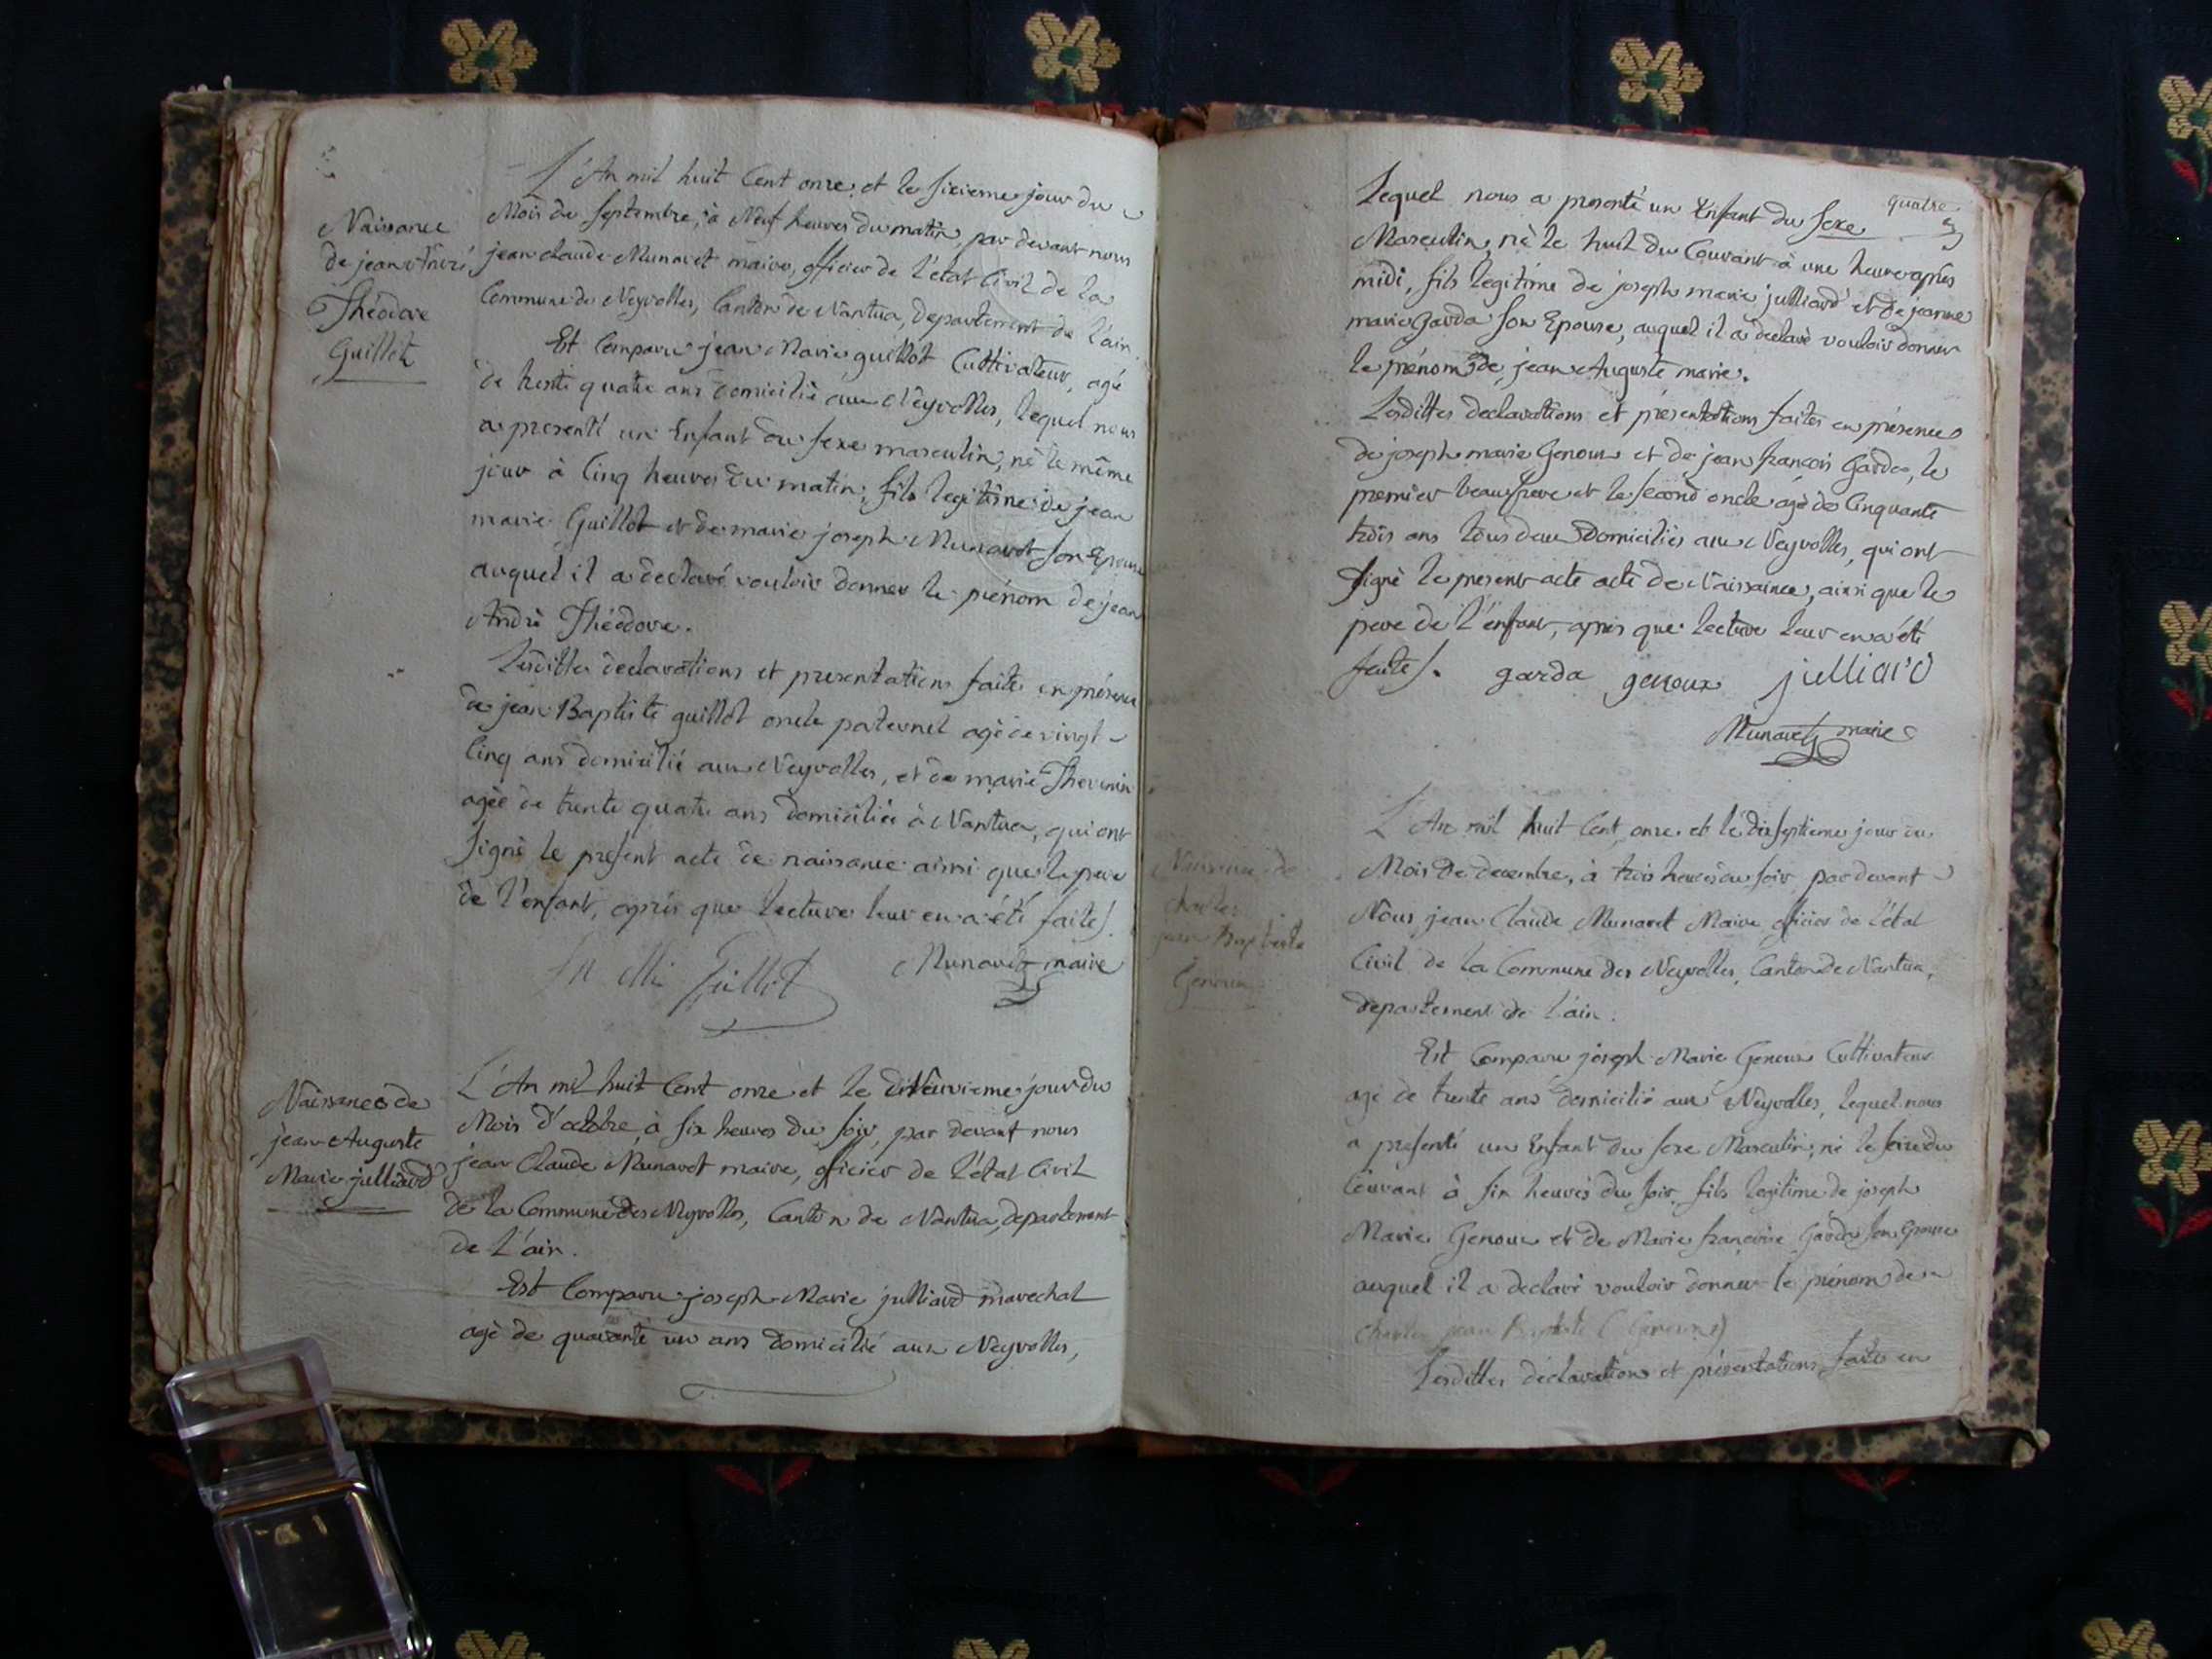 Naissance
de jean André
Théodore
Guillot
L'An mil huit Cent onze et le sixieme jour du
Mois de Septembre, à Neuf heures du matin, par devant nous
jean claude Munavet maire, officier de l'état Civil de la
Commune des Neyrolles, Canton de Nantua, departement de l'ain.
Est Comparu jean Marie guillot Cultivateur, agé
de trente quatre ans domicilié aux Neyrolles, lequel nous
a presenté un Enfant du sexe masculin, né le même
jour à Cinq heures du matin, fils legitime de jean
marie Guillot et de marie joseph Munavet son Epouse
auquel il a declaré vouloir donner le prénom de jean
André Théodore.
Lesdittes declarations et presentations faites en présence
de jean Baptiste guillot oncle paternel agé de vingt
Cinq ans domicilié aux Neyrolles, et de marie Thevenin
agée de trente quatre ans domiciliée à Nantua, qui ont
signé le present acte de naissance ainsi que le pere
de l'enfant, après que lecture leur en a été faite.
Guillot Munavet maire
Naissance de
jean Auguste
Marie julliard
L'An mil huit Cent onze et le dixneuvieme jour du
Mois d'octobre, à six heures du soir, par devant nous
jean Claude Munavet maire, officier de l'état Civil
de la Commune des Neyrolles, Canton de Nantua, departement
de l'ain.
Est Comparu joseph Marie julliard marechal
agé de quarante un ans domicilié aux Neyrolles,
quatre
Lequel nous a presenté un Enfant du Sexe
Masculin, né le huit du Courant à une heure après
midi, fils legitime de joseph marie julliard et de jeanne
marie Garda son Epouse, auquel il a declaré vouloir donner
le prénom de jean Auguste marie.
Lesdittes declarations et présentations faites en présence
de joseph marie Genoux et de jean françois Garda, le
premier beaufrere et le second oncle agé de Cinquante
trois ans tous deux Domiciliés aux Neyrolles, qui ont
signé le present acte acte de Naissance, ainsi que le
pere de l'enfant, après que lecture leur en a été
faite. garda genoux julliard
Munavet maire
Naissance de
charles
jean Baptiste
Genoux
L'An mil huit Cent onze et le dixseptieme jour du
Mois de decembre, à trois heures du soir par devant
Nous jean Claude Munavet Maire officier de l'état
Civil de la Commune des Neyrolles, Canton de Nantua,
departement de l'ain.
Est Comparu joseph Marie Genoux Cultivateur
agé de trente ans domicilié aux Neyrolles, lequel nous
a presenté un Enfant du sexe Masculin, né le seize du
Courant à six heures du soir, fils legitime de joseph
Marie Genoux et de Marie françoise Garda son Epouse
auquel il a declaré vouloir donner le prénom de
charles jean Baptiste (Genoux)
Lesdittes déclarations et présentations faites en